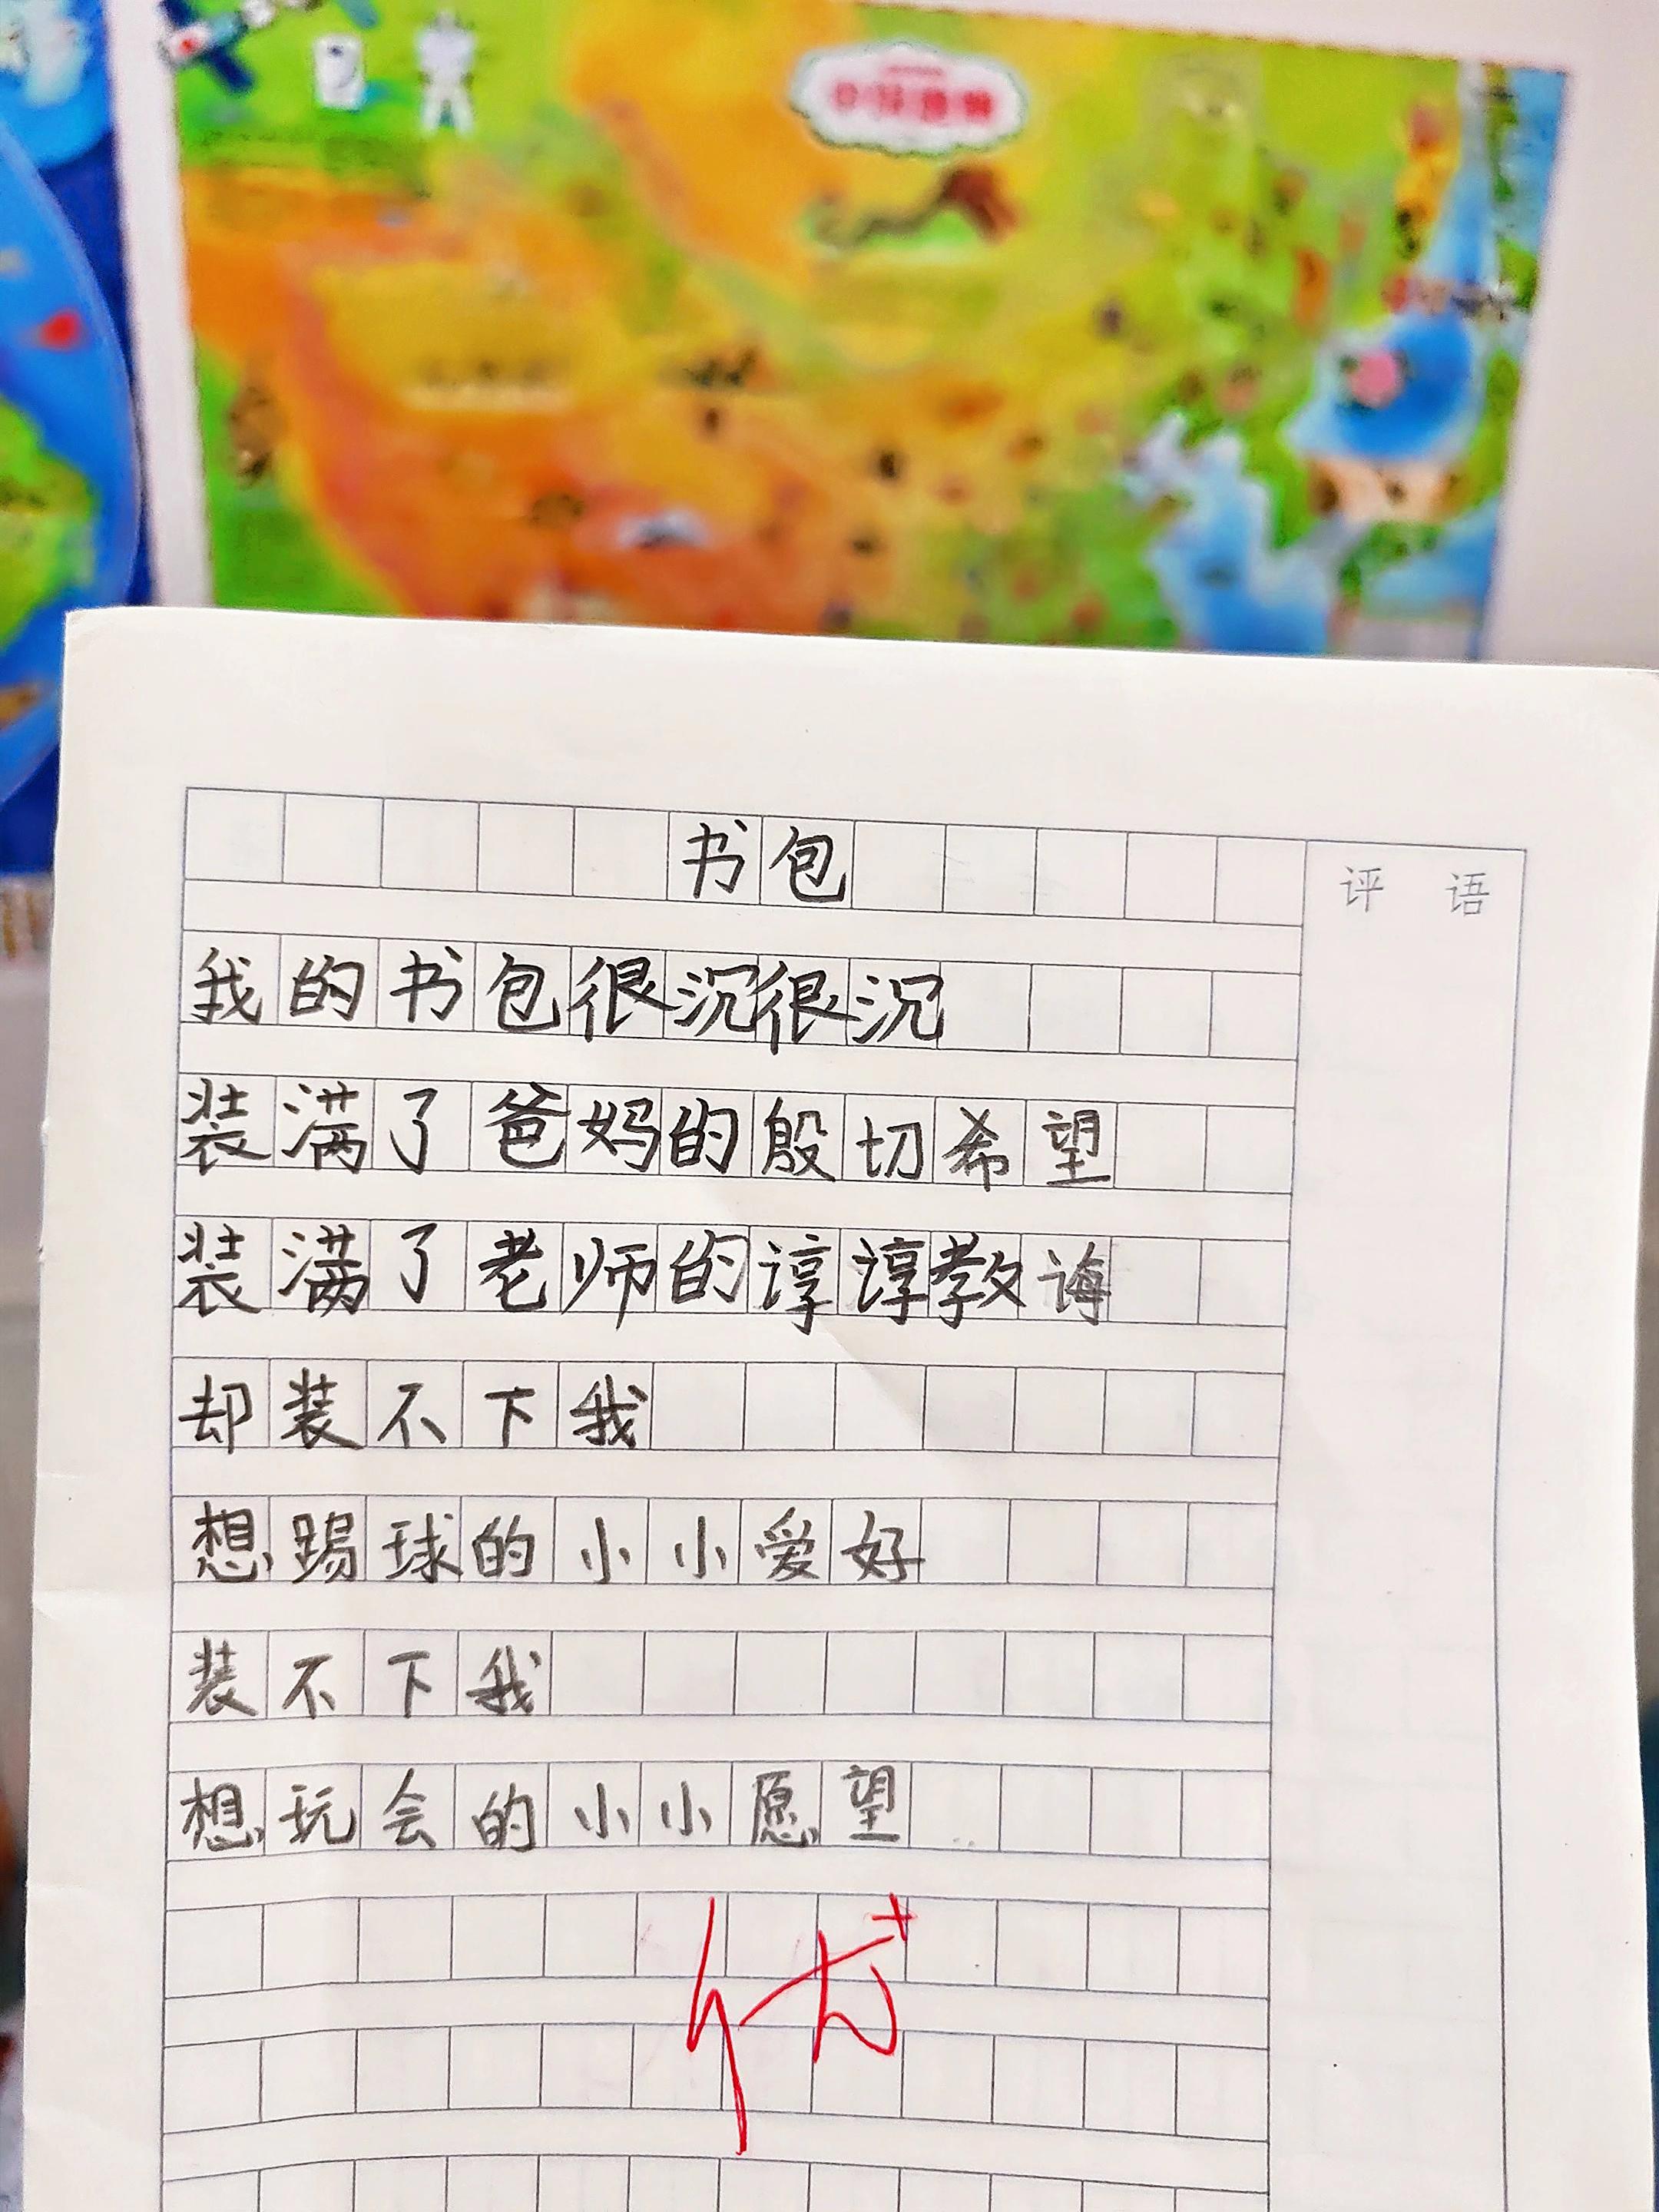 书包
评语
我的书包很沉很沉
装满了爸妈的殷切希望
装满了老师的谆谆教诲
却装不下我
想踢球的小小爱好
装不下我
想玩会的小小愿望
优+